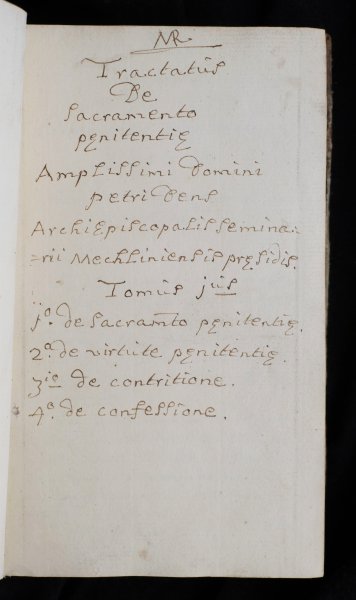 NR
Tractatús
De
Sacramento
pęnitentię
Amplissimi Domini
petri Dens
Archiępiscopalis semina=
=rii Mechliniensis pręsidis.
Tomús jús
jo. de Sacramto pęnitentię.
2a. de virtute pęnitentię.
3io de contritione.
4o. de confessione.